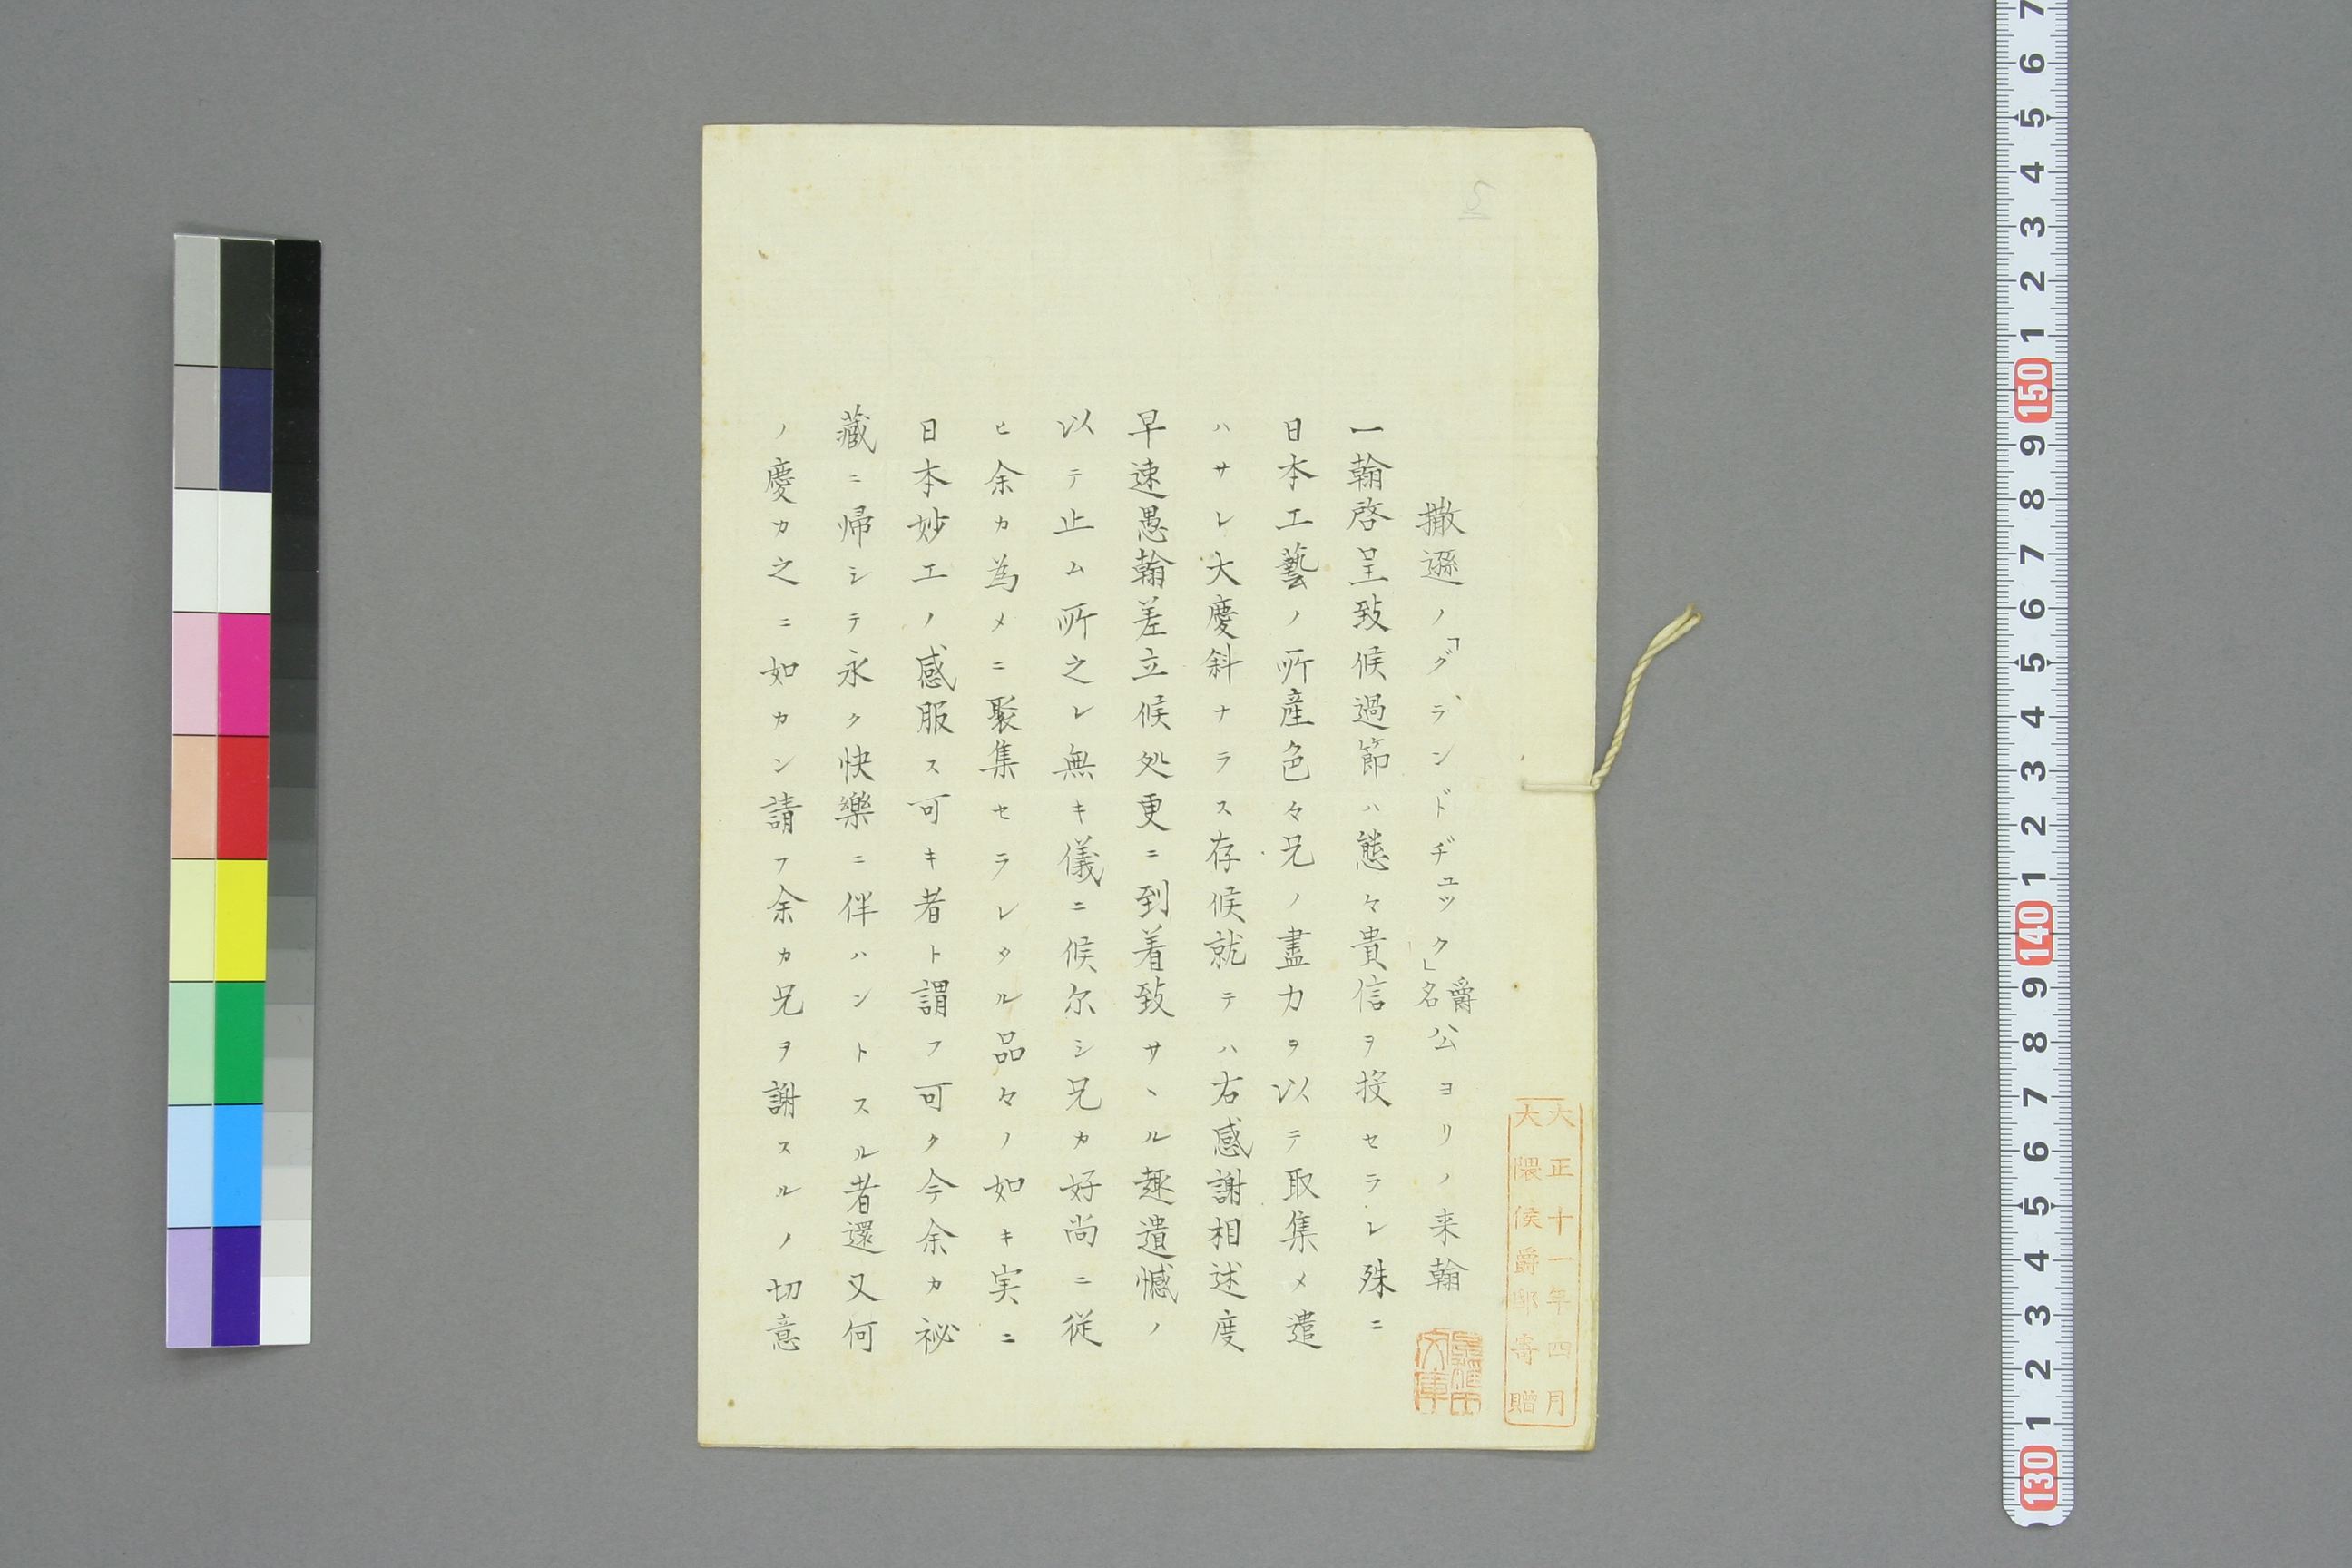 大正十一年四月
大隈侯爵邸寄贈
撒遜ノ「グランドヂュック」爵名公ヨリノ来翰
一翰啓呈致候過節ハ態々貴信ヲ投セラレ殊ニ
日本工藝ノ所産色々兄ノ盡力ヲ以テ取集メ遣
ハサレ大慶斜ナラス存候就テハ右感謝相述度
早速愚翰差立候処更ニ到着致サヽル趣遺憾ノ
以テ止ム所之レ無キ儀ニ候尓シ兄カ好尚ニ従
ヒ余カ為メニ聚集セラレタル品々ノ如キ実ニ
日本妙工ノ感服ス可キ者ト謂フ可ク今余カ祕
藏ニ帰シテ永ク快樂ニ伴ハントスル者還又何
ノ慶カ之ニ如カン請フ余カ兄ヲ謝スルノ切意
5
7
6
5
4
3
2
1
150
9
8
7
6
5
4
3
2
1
140
9
8
7
6
5
4
3
2
1
130